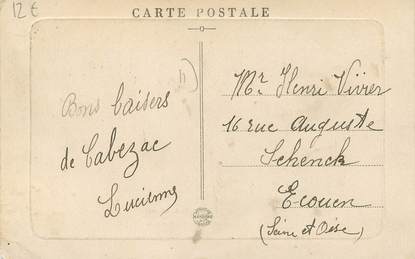 12€
CARTE POSTALE
Bons baisers
de Cabezac
Lucienne
Mr Henri Vivier
16 rue Auguste
Schenck
Ecouen
(Seine et Oise)